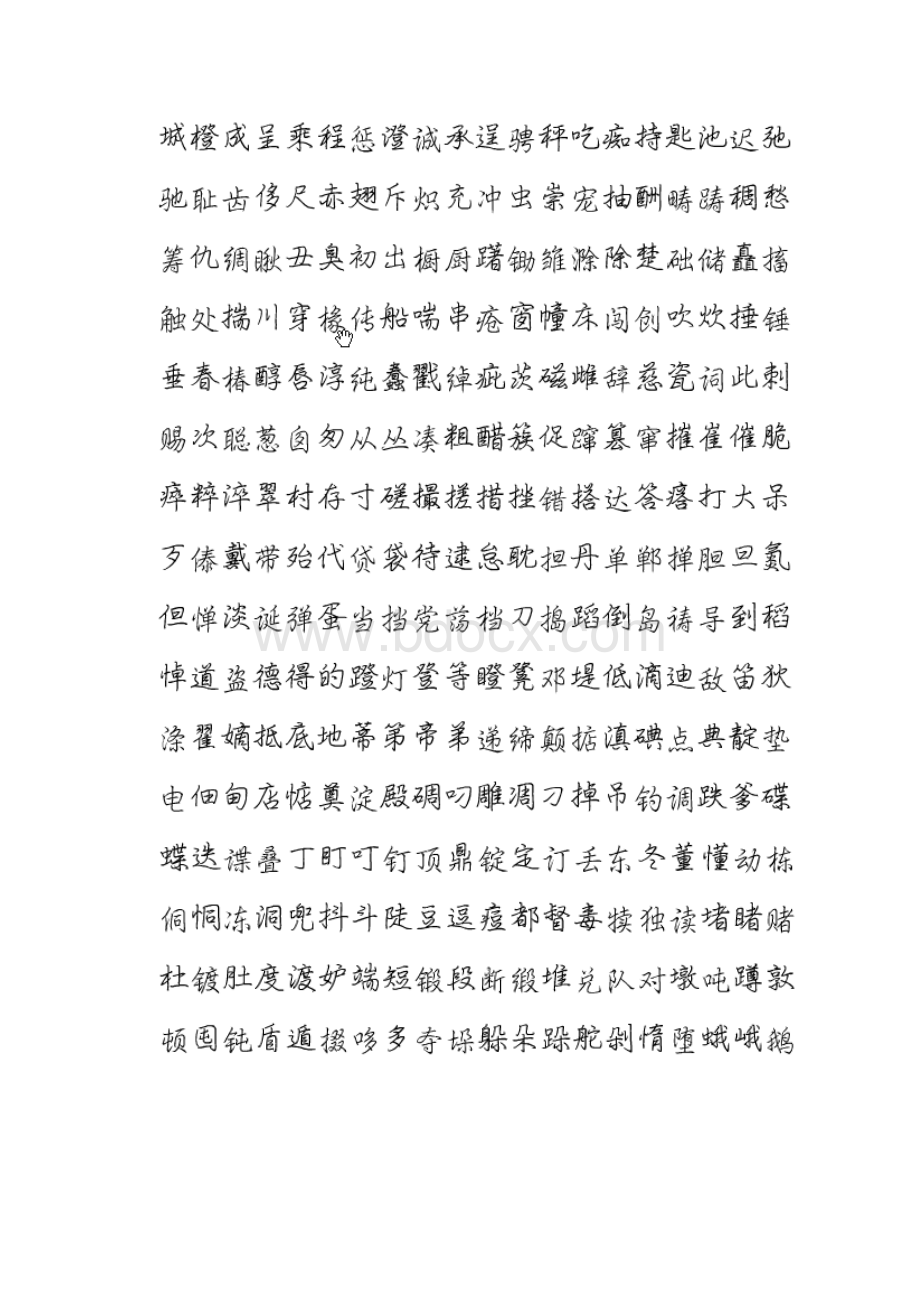 城橙成呈乘程惩澄诚承逞骋秤吃痴持匙池迟弛
驰耻齿侈尺赤翅斥炽充冲虫崇宠抽酬畴踌稠愁
筹仇绸瞅丑臭初出橱厨躇锄雏滁除楚础储矗搐
触处揣川穿椽传船喘串疮窗幢床闯创吹炊捶锤
垂春椿醇唇淳纯蠢戳绰疵茨磁雌辞慈瓷词此刺
赐次聪葱囱匆从丛凑粗醋簇促蹿篡窜摧崔催脆
瘁粹淬翠村存寸磋撮搓措挫错搭达答瘩打大呆
歹傣戴带殆代贷袋待逮怠耽担丹单郸掸胆旦氮
但惮淡诞弹蛋当挡党荡档刀捣蹈倒岛祷导到稻
www.bdocx.com
悼道盗德得的蹬灯登等瞪凳邓堤低滴迪敌笛狄
涤翟嫡抵底地蒂第帝弟递缔颠掂滇碘点典靛垫
电佃甸店惦奠淀殿碉叼雕凋刁掉吊钓调跌爹碟
蝶迭谍叠丁盯叮钉顶鼎锭定订丢东冬董懂动栋
侗恫冻洞兜抖斗陡豆逗痘都督毒犊独读堵睹赌
杜镀肚度渡妒端短锻段断缎堆兑队对墩吨蹲敦
顿囤钝盾遁掇哆多夺垛躲朵跺舵剁惰堕蛾峨鹅